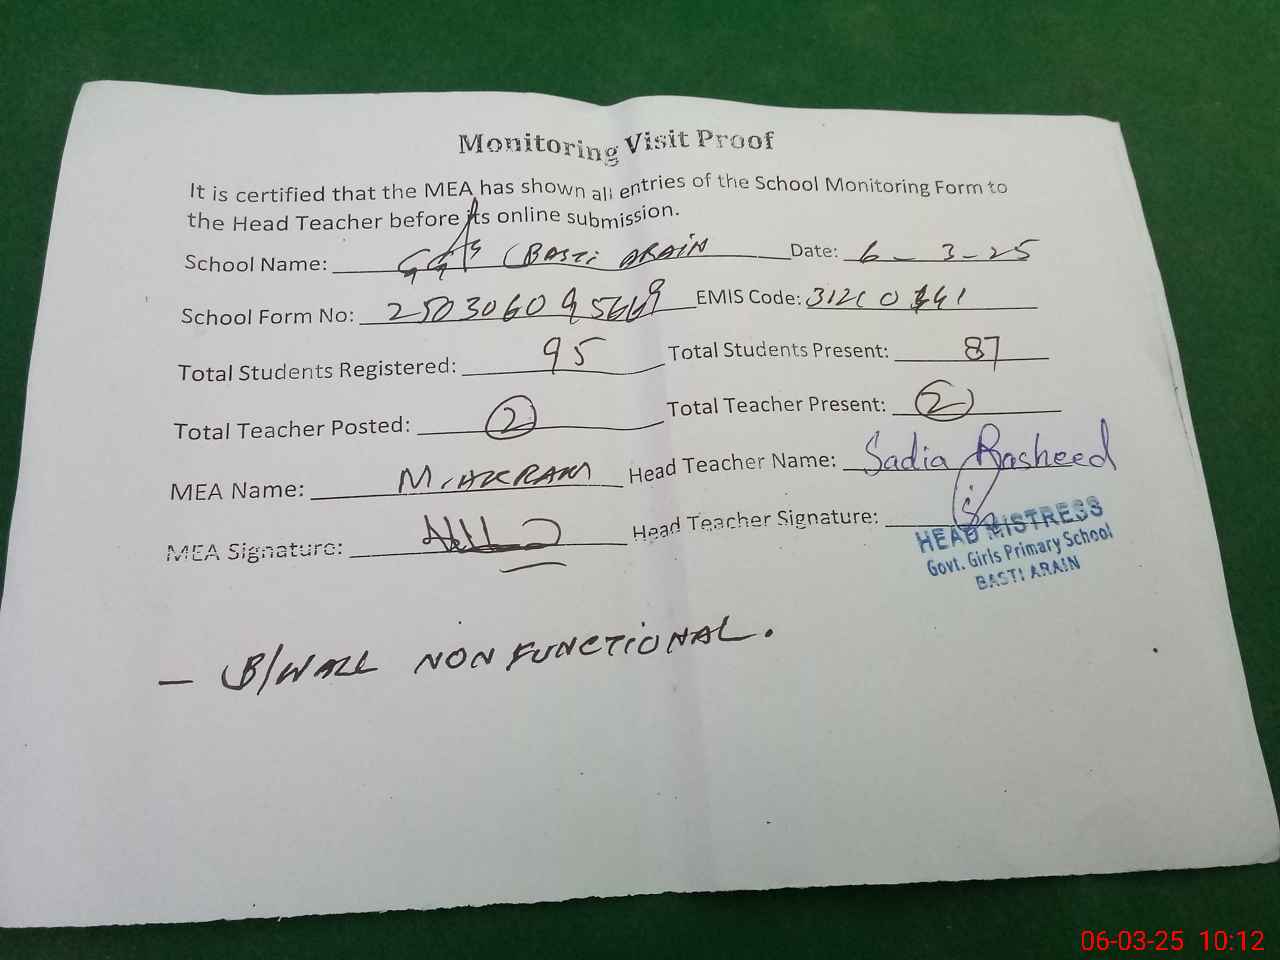 Monitoring Visit Proof
It is certified that the MEA has shown all entries of the School Monitoring Form to
the Head Teacher before its online submission.
School Name: GGPS BASTI ARAIN Date: 6-3-25
School Form No: EMIS Code:
Total Students Registered: 95 Total Students Present: 87
Total Teacher Posted: 2 Total Teacher Present: 2
MEA Name: M. AKRAM Head Teacher Name: Sadia Rasheed
MEA Signature: Head Teacher Signature:
HEAD MISTRESS
Govt. Girls Primary School
BASTI ARAIN
- B/WALL NON FUNCTIONAL.
06-03-25 10:12